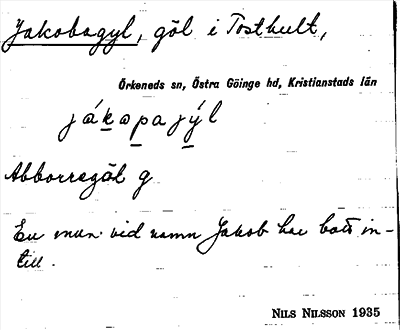 Jakobsgyl, göl i Tosthult,
Örkeneds sn, Östra Göinge hd, Kristianstads län
jákopajýl
Abborregöl g
En man vid namn Jakob har bott in-
till.
NILS NILSSON 1935